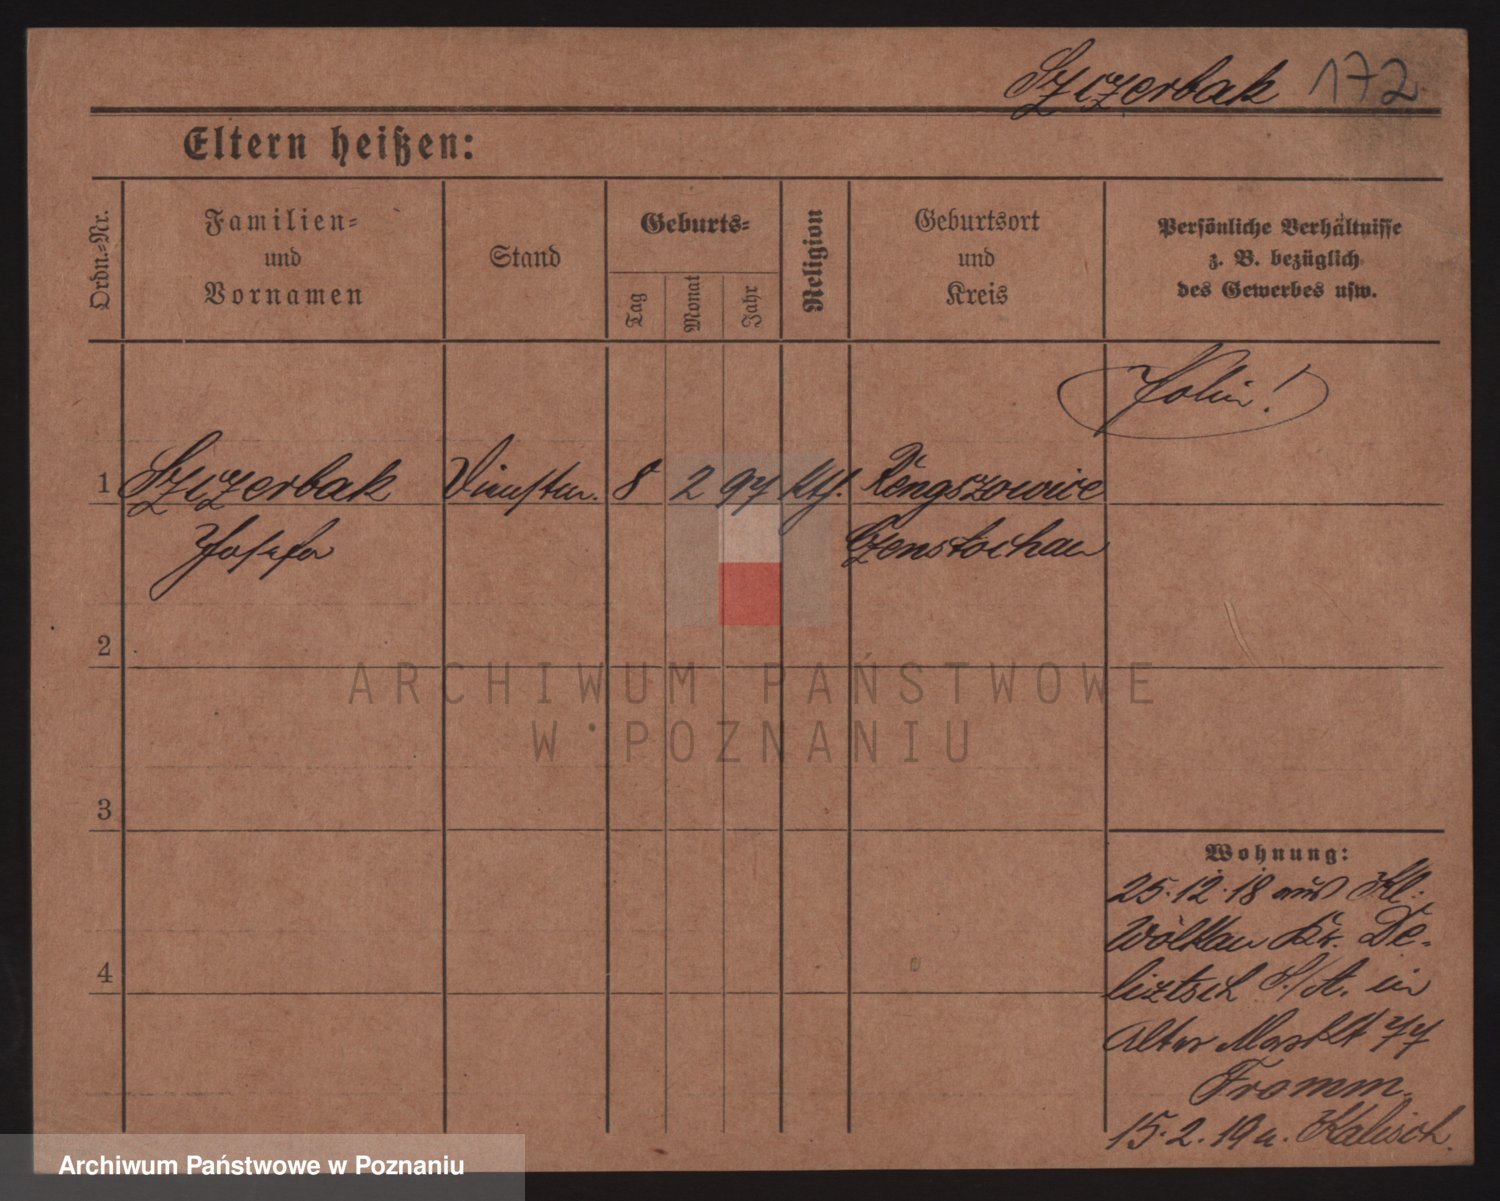 Szczerbak 172
Eltern heißen:
Ordn.=Nr.
Familien=
und
Vornamen
Stand
Geburts=
Tag
Monat
Jahr
Religion
Geburtsort
und
Kreis
Persönliche Verhältnisse
z. B. bezüglich
des Gewerbes usw.
1 Szczerbak 8 2 97 kth. Rengszowice
Josefa Czenstochau
2
3
4
Wohnung:
25.12.18 aus Kl.
Wölkau Kr. De-
litzsch S./A. in
Alter Markt 77
Fromm.
15.2.19 n. Kalisch.
ARCHIWUM PAŃSTWOWE
W POZNANIU
Archiwum Państwowe w Poznaniu